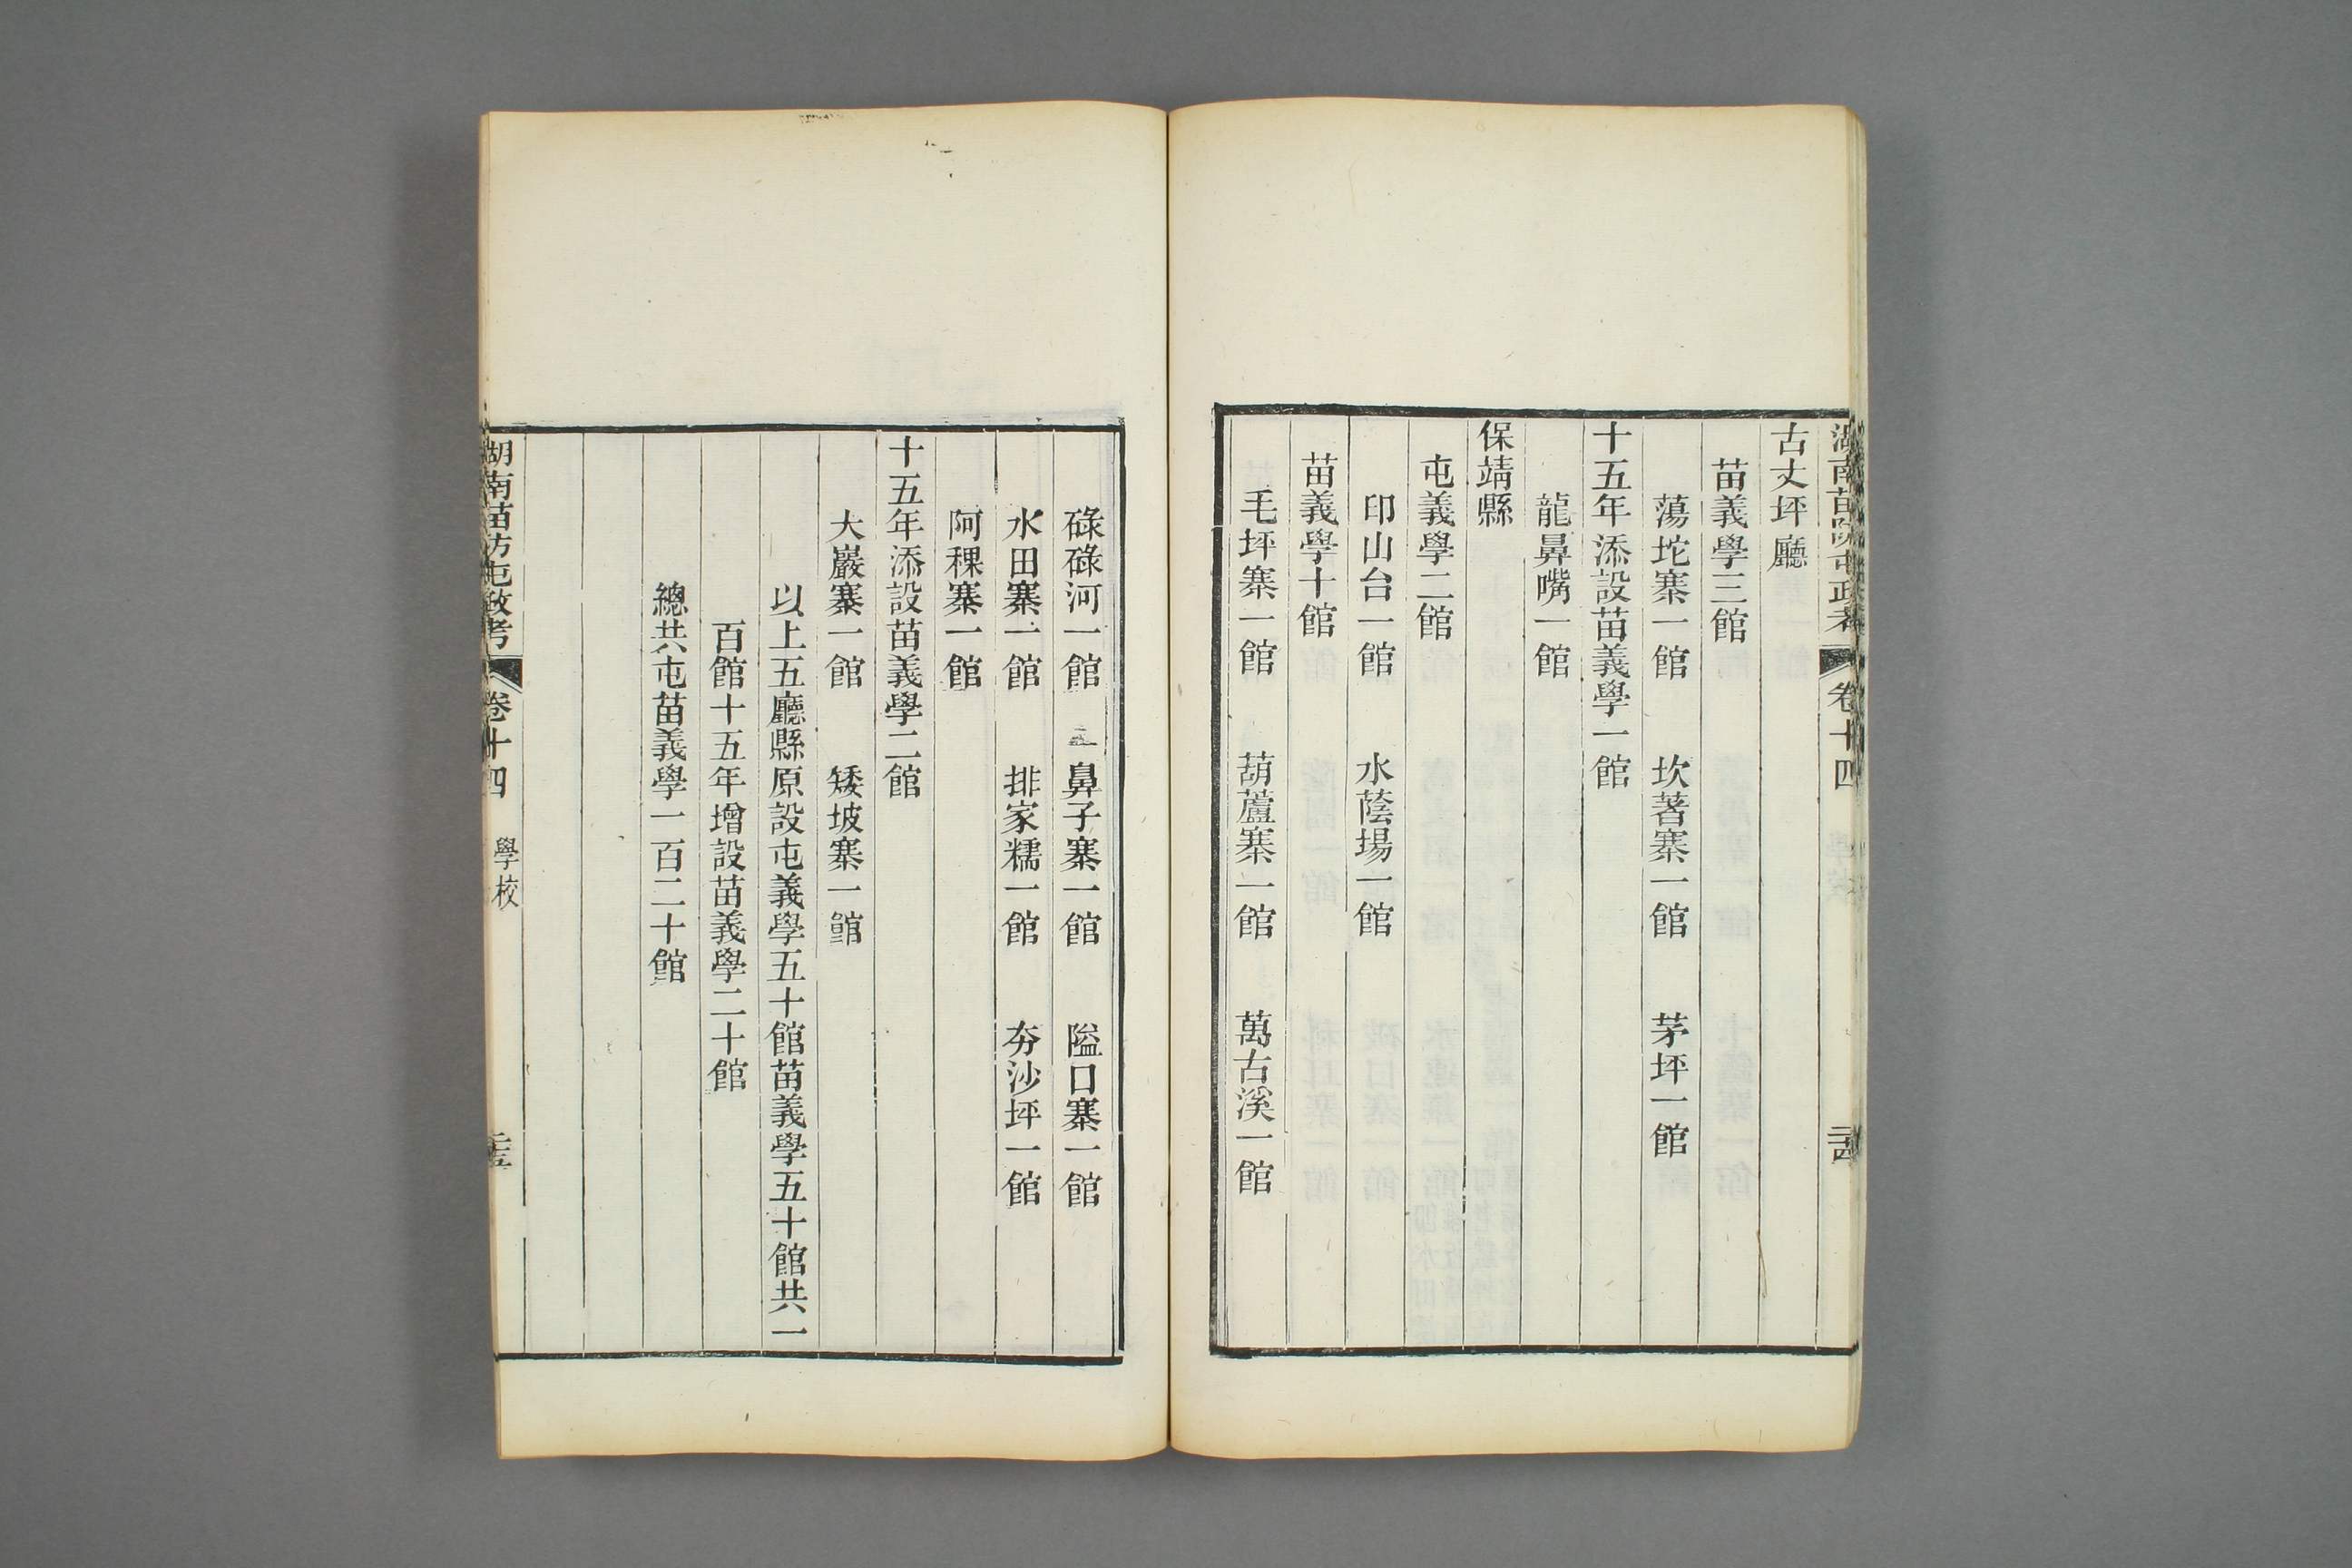 湖南苗防屯政考 卷十四
古丈坪廳
苗義學三館
蕩坨寨一館 坎著寨一館 茅坪一館
十五年添設苗義學一館
龍鼻嘴一館
保靖縣
屯義學二館
印山台一館 水蔭場一館
苗義學十館
毛坪寨一館 葫蘆寨一館 萬古溪一館
碌碌河一館 鼻子寨一館 隘口寨一館
水田寨一館 排家糯一館 夯沙坪一館
阿稞寨一館
十五年添設苗義學二館
大巖寨一館 矮坡寨一館
以上五廳縣原設屯義學五十館苗義學五十館共一
百館十五年增設苗義學二十館
總共屯苗義學一百二十館
湖南苗防屯政考 卷十四 學校 二十五